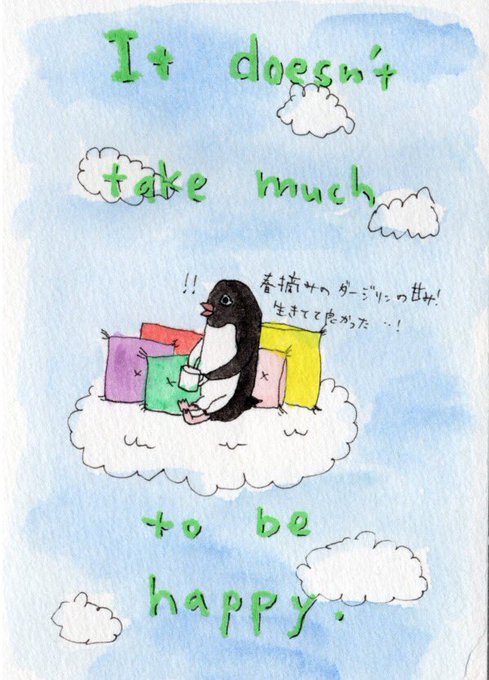 It doesn't
take much
!!
春摘みのダージリンの甘み!
生きてて良かった…!
to be
happy.